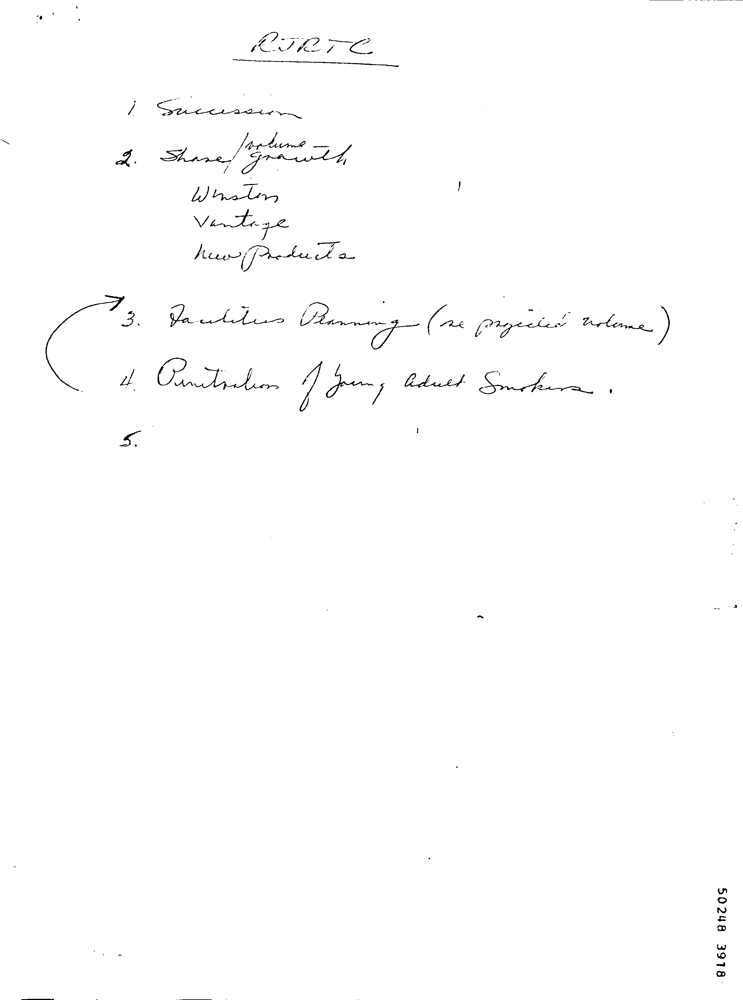 RJRTC
1 Succession
2. Share/volume -
growth
Winston
Vantage
New Products
3. Facilities Planning (re projected volume)
4. Penetration of Young Adult Smokers.
5.
50248 3918